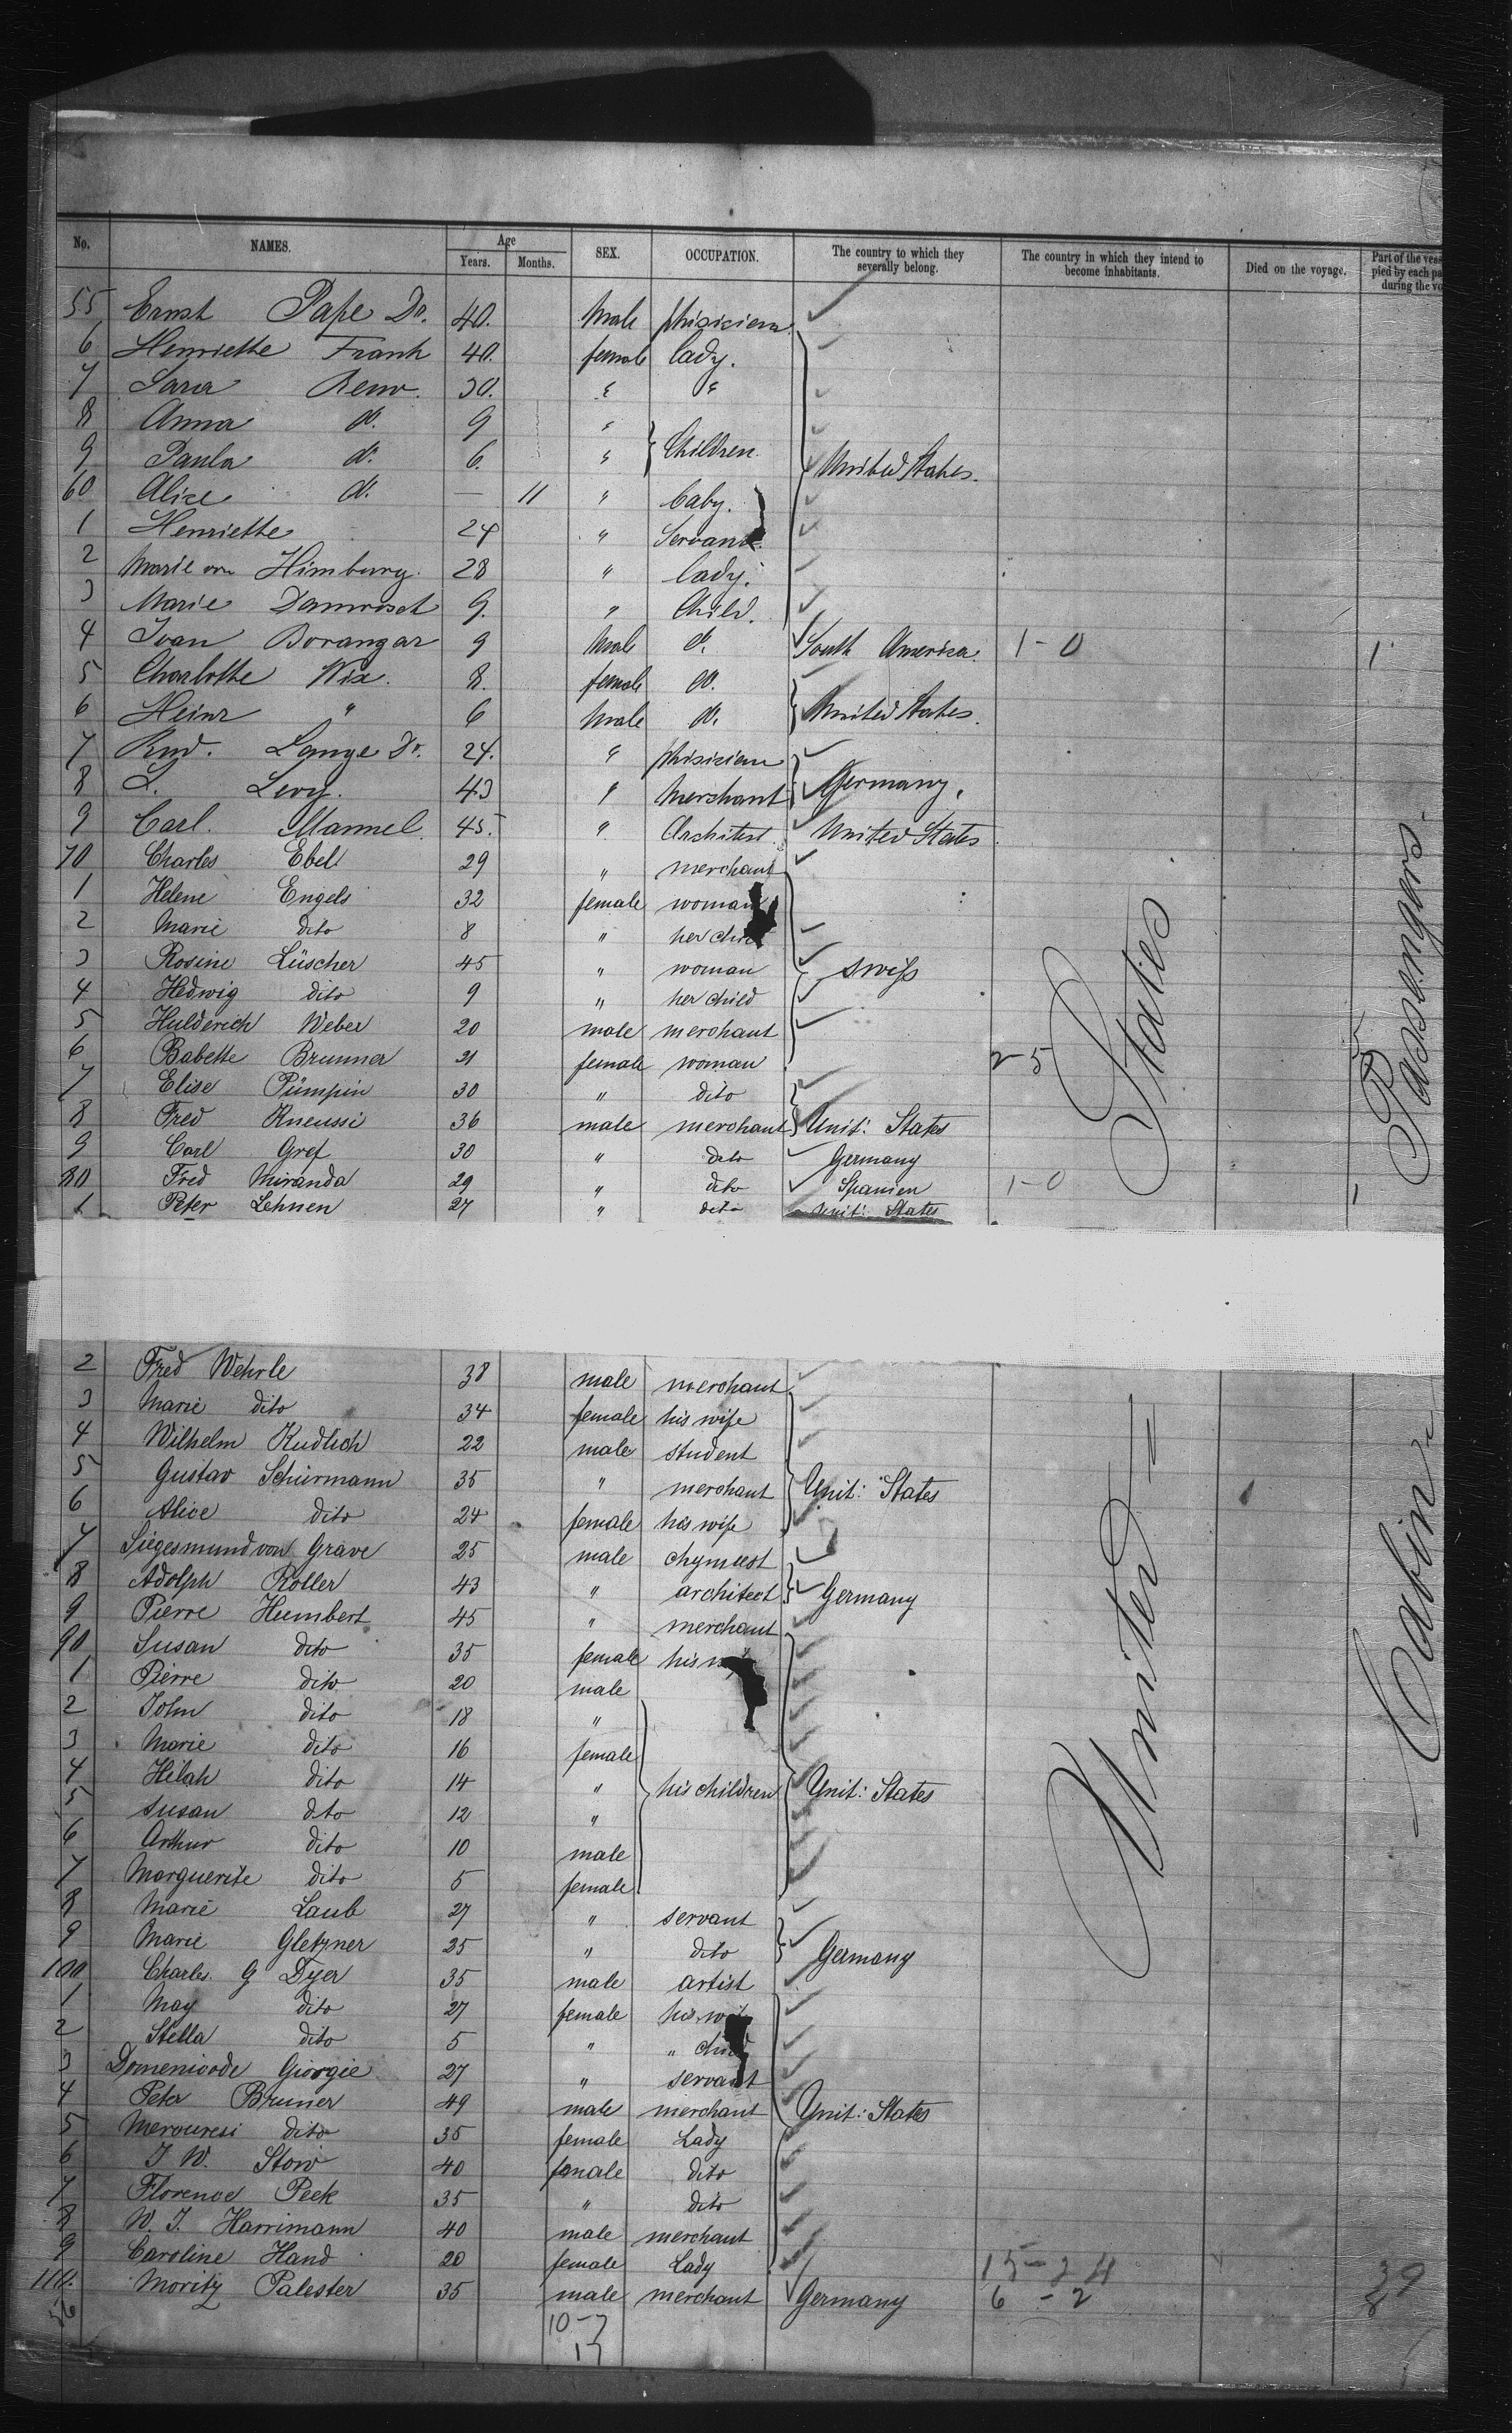 No. NAMES. Age Years. Months. SEX. OCCUPATION. The country to which they severally belong. The country in which they intend to become inhabitants. Died on the voyage. Part of the vess pied by each pa during the vo
55 Ernst Pape Dr. 40. Male phisiciem
6 Henriette Frank 40. female lady.
7 Sara Renv. 30. " "
8 Anna do. 9 "
9 Paula do. 6. " Children. United States.
60 Alice do. — 11 " baby.
1 Henriette 24 " Servant.
2 Marie von Himburg. 28 " lady.
3 Marie Damrosch 9. " Child.
4 Ivan Borangar 9 Male do. South America. 1-0 1
5 Charlotte Wix. 8. female do.
6 Heinr " 6 Male do. United States.
7 Rud. Lange Dr. 24. " phisiciem
8 L. Levy. 43 " Merchant Germany.
9 Carl. Mannel 45. " Architect. United States
70 Charles Ebel 29 " merchant
1 Helene Engels 32 female woman
2 Marie dito 8 " her child
3 Rosine Lüscher 45 " woman swiss
4 Hedwig dito 9 " her child
5 Hulderich Weber 20 male merchant
6 Babette Brunner 21 female woman 2-5 5
7 Elise Pümpin 30 " dito
8 Fred Kneussi 36 male merchant Unit: States
9 Carl Gref 30 " dito Germany
80 Fred Miranda 29 " dito Spanien 1-0 1
1 Peter Lehnen 27 " dito Unit: States
2 Fred Wehrle 38 male merchant
3 Marie dito 34 female his wife
4 Wilhelm Kudlich 22 male student
5 Gustav Schürmann 35 " merchant Unit: States
6 Alice dito 24 female his wife
7 Siegesmund von Grave 25 male chymeest
8 Adolph Roller 43 " architect Germany
9 Pierre Humbert 45 " merchant
90 Susan dito 35 female his
1 Pierre dito 20 male
2 John dito 18 "
3 Marie dito 16 female
4 Hilah dito 14 " his children Unit: States
5 Susan dito 12 "
6 Arthur dito 10 male
7 Marguerite dito 5 female
8 Marie Laub 27 " servant
9 Marie Gletzner 25 " dito Germany
100 Charles G Dyer 35 male artist
1 May dito 27 female his wife
2 Stella dito 5 " " child
3 Domenicode Giorgie 27 " servant
4 Peter Bruner 49 male merchant Unit: States
5 Mercuresi dito 35 female Lady
6 J W. Stow 40 female dito
7 Florence Peek 35 " dito
8 W. J. Harrimann 40 male merchant
9 Caroline Hand 20 female Lady 15-24 39
110. Moritz Palester 35 male merchant Germany 6 - 2 8
56 10-7
17
United States
Cabin Passengers.